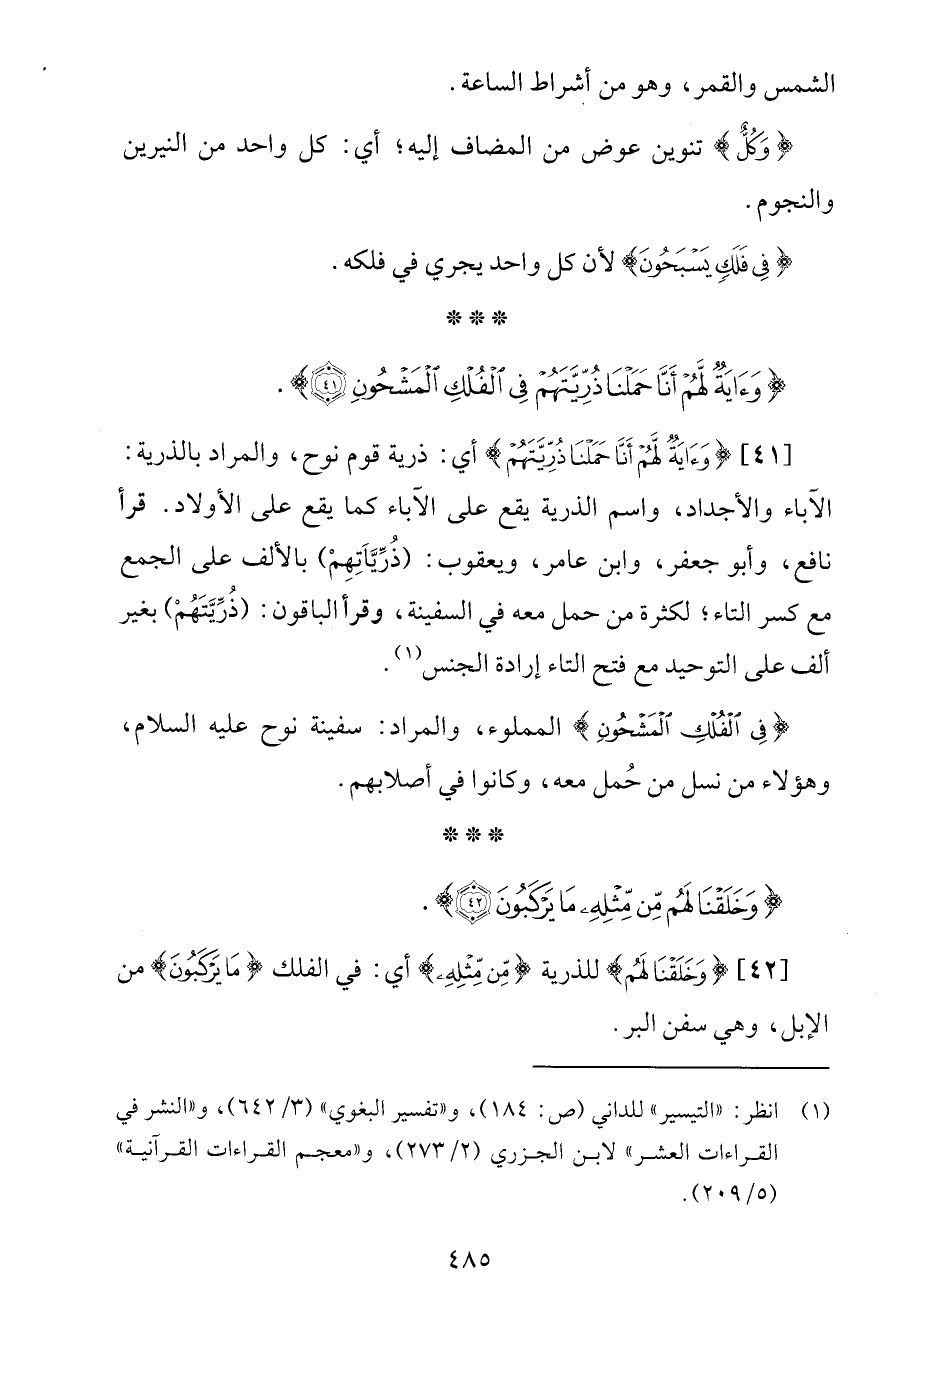 الشمس والقمر، وهو من أشراط الساعة.
﴿وَكُلٌّ﴾ تنوين عوض من المضاف إليه؛ أي: كل واحد من النيرين
والنجوم.
﴿فِي فَلَكٍ يَسْبَحُونَ﴾ لأن كل واحد يجري في فلكه.
* * *
﴿وَءَايَةٌ لَّهُمْ أَنَّا حَمَلْنَا ذُرِّيَّتَهُمْ فِي ٱلْفُلْكِ ٱلْمَشْحُونِ ٤١﴾.
[٤١] ﴿وَءَايَةٌ لَّهُمْ أَنَّا حَمَلْنَا ذُرِّيَّتَهُمْ﴾ أي: ذرية قوم نوح، والمراد بالذرية:
الآباء والأجداد، واسم الذرية يقع على الآباء كما يقع على الأولاد. قرأ
نافع، وأبو جعفر، وابن عامر، ويعقوب: (ذُرِّيَّاتِهِمْ) بالألف على الجمع
مع كسر التاء؛ لكثرة من حمل معه في السفينة، وقرأ الباقون: (ذُرِّيَّتَهُمْ) بغير
ألف على التوحيد مع فتح التاء إرادة الجنس(١).
﴿فِي ٱلْفُلْكِ ٱلْمَشْحُونِ﴾ المملوء، والمراد: سفينة نوح عليه السلام،
وهؤلاء من نسل من حُمل معه، وكانوا في أصلابهم.
* * *
﴿وَخَلَقْنَا لَهُم مِّن مِّثْلِهِۦ مَا يَرْكَبُونَ ٤٢﴾.
[٤٢] ﴿وَخَلَقْنَا لَهُم﴾ للذرية ﴿مِّن مِّثْلِهِۦ﴾ أي: في الفلك ﴿مَا يَرْكَبُونَ﴾ من
الإبل، وهي سفن البر.
(١) انظر: «التيسير» للداني (ص: ١٨٤)، و«تفسير البغوي» (٣/ ٦٤٢)، و«النشر في
القراءات العشر» لابن الجزري (٢/ ٢٧٣)، و«معجم القراءات القرآنية»
(٥/ ٢٠٩).
٤٨٥